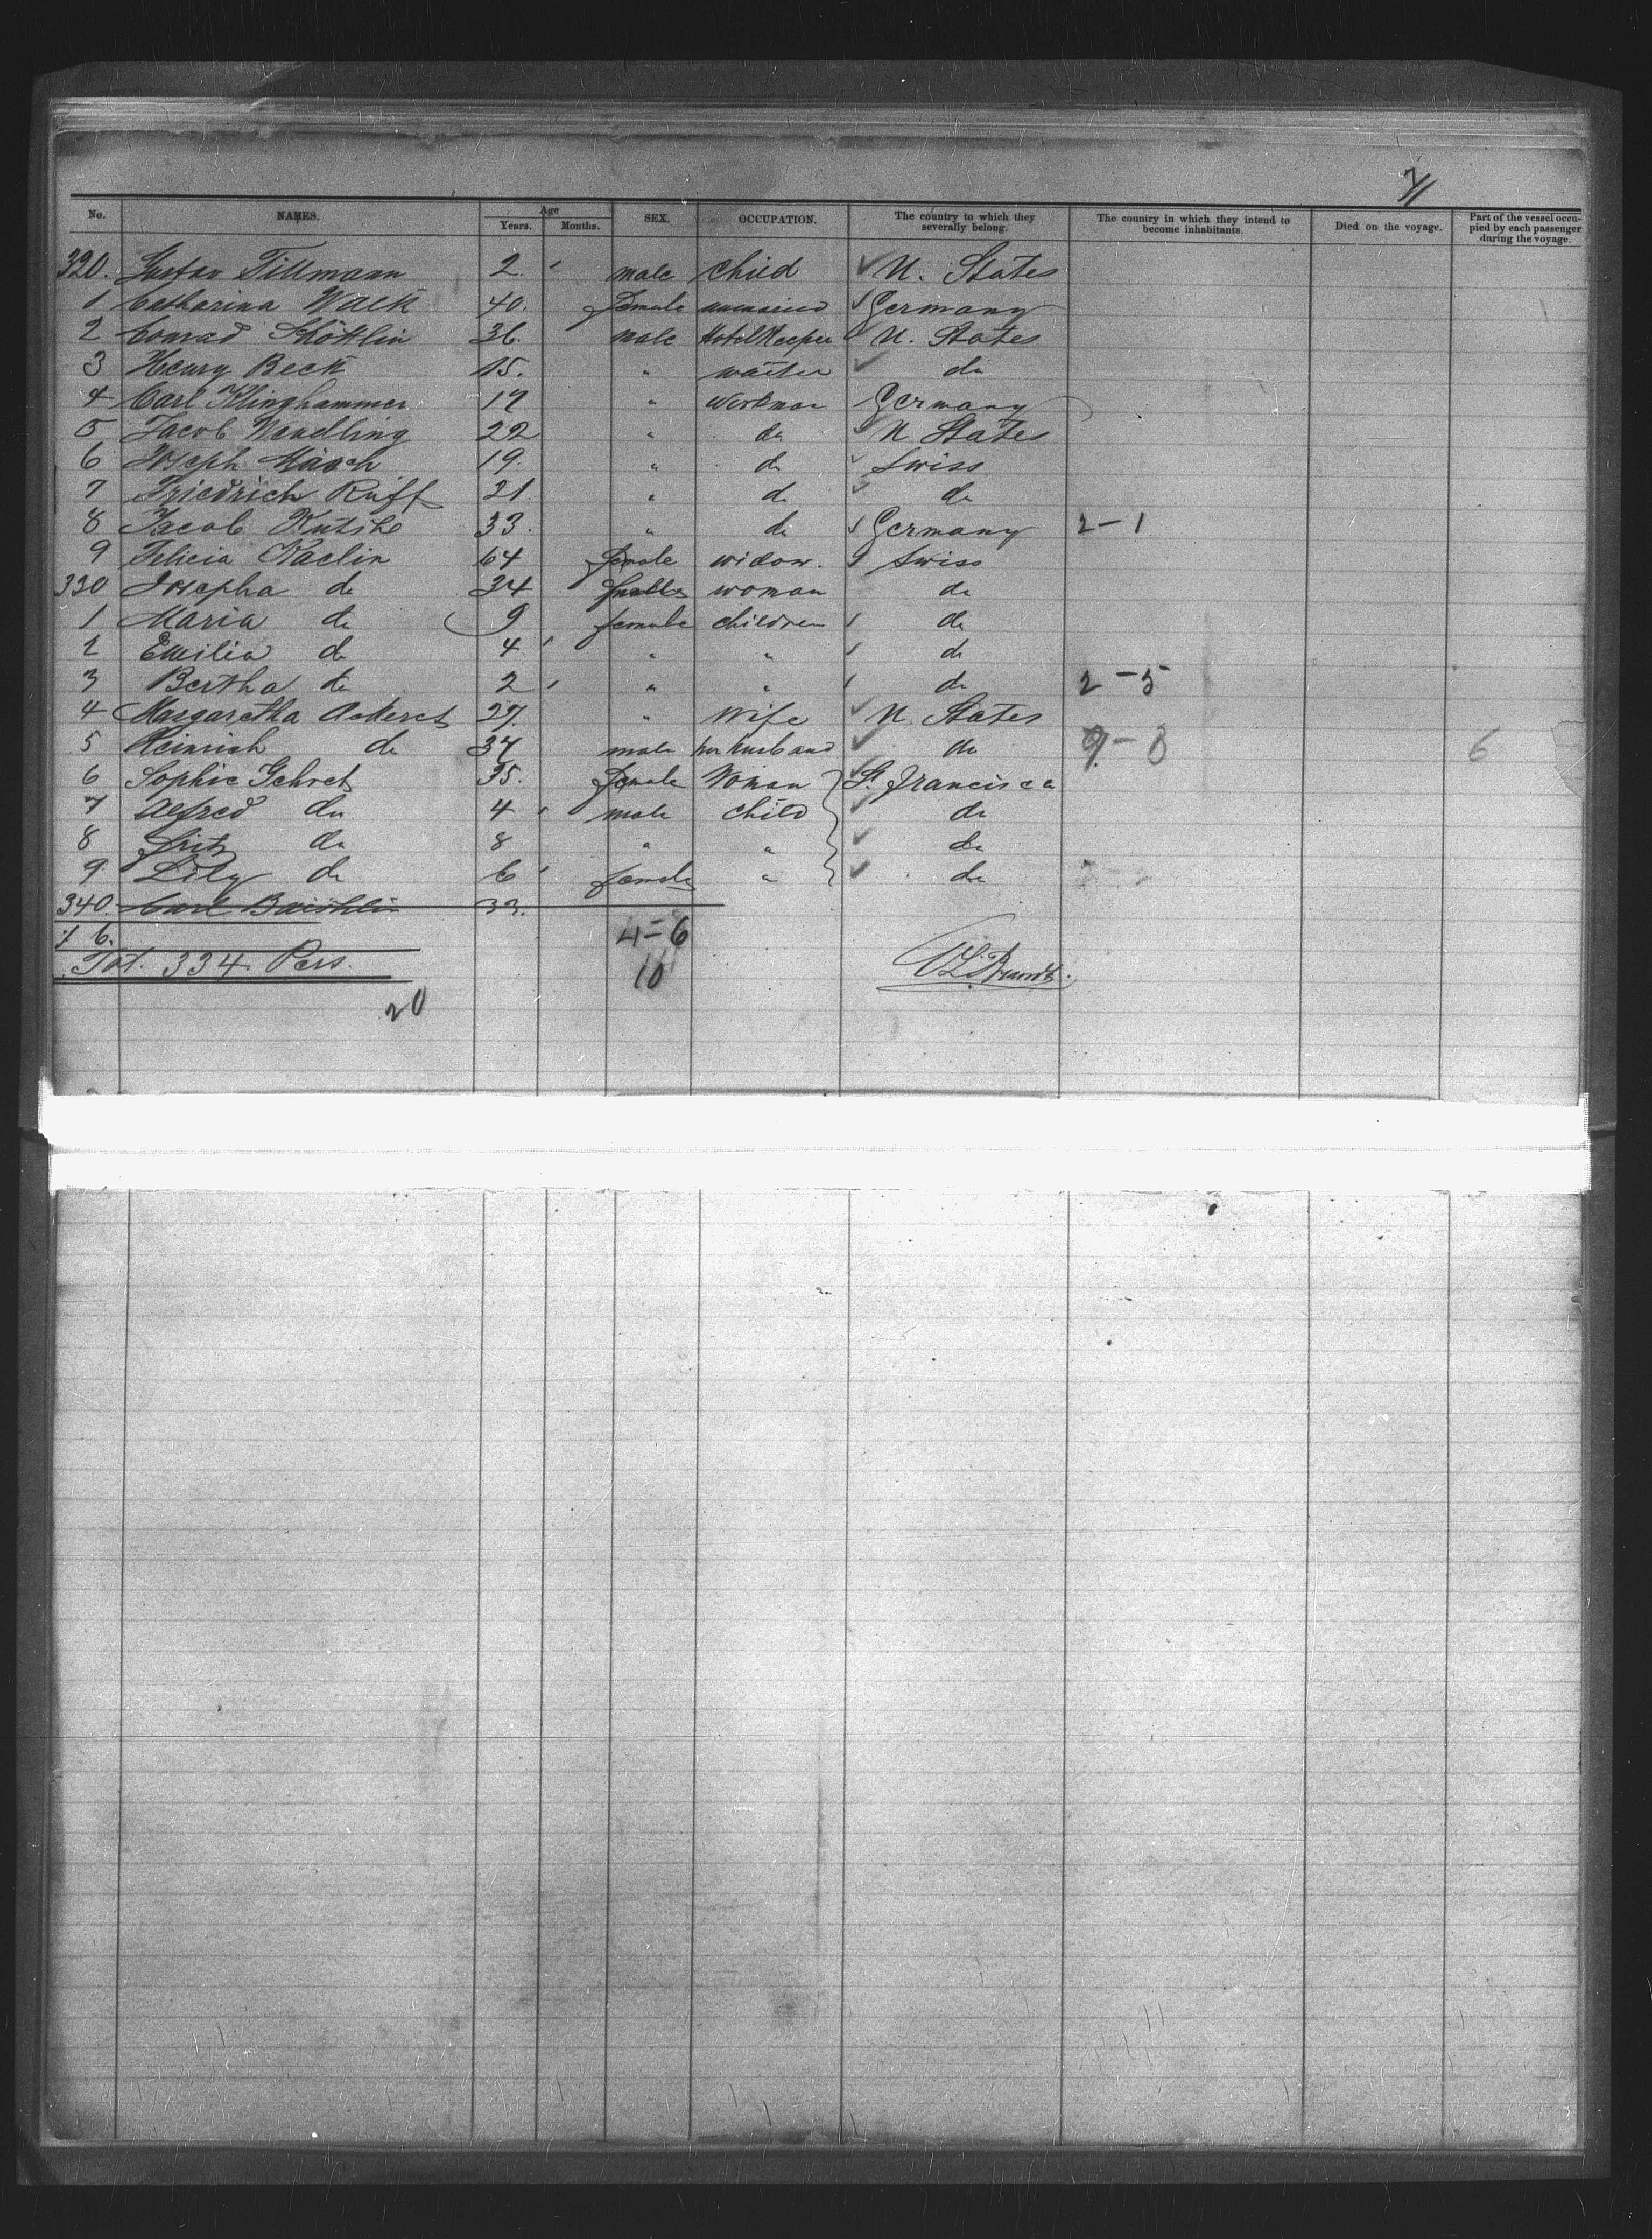 7/1
No. NAMES. Age Years. Months. SEX. OCCUPATION. The country to which they severally belong. The country in which they intend to become inhabitants. Died on the voyage. Part of the vessel occupied by each passenger during the voyage.
320. Gustav Tillmann 2. male child U. States
1 Catharina Wack 40. female unmaried Germany
2 Conrad Schöttlin 36. male Hotelkeeper U. States
3 Henry Beck 15. " waiter do
4 Carl Klinghammer 17 " workman Germany
5 Jacob Wendling 22 " do U. States
6 Joseph 19. " do Swiss
7 Friedrich Ruff 21 " do do
8 Jacob 33. " do Germany 2-1
9 Felicia Kaelin 64 female widow. Swiss
330 Josepha do 34 woman do
1 Maria do 9 female children do
2 Emilia do 4 " " do
3 Bertha do 2 " " do 2-5
4 Margaretha Ackeret 27. " Wife U. States
5 Heinrich do 34 male her husband do 9-8 6
6 Sophie Gehret 35. female Woman St. Francisca
7 Alfred do 4 male child do
8 Fritz do 8 " " do
9. Lily do 6 female " do
340. Carl 33.
% 6. 4-6
Tot. 334 Pers. 10 Brandt.
20